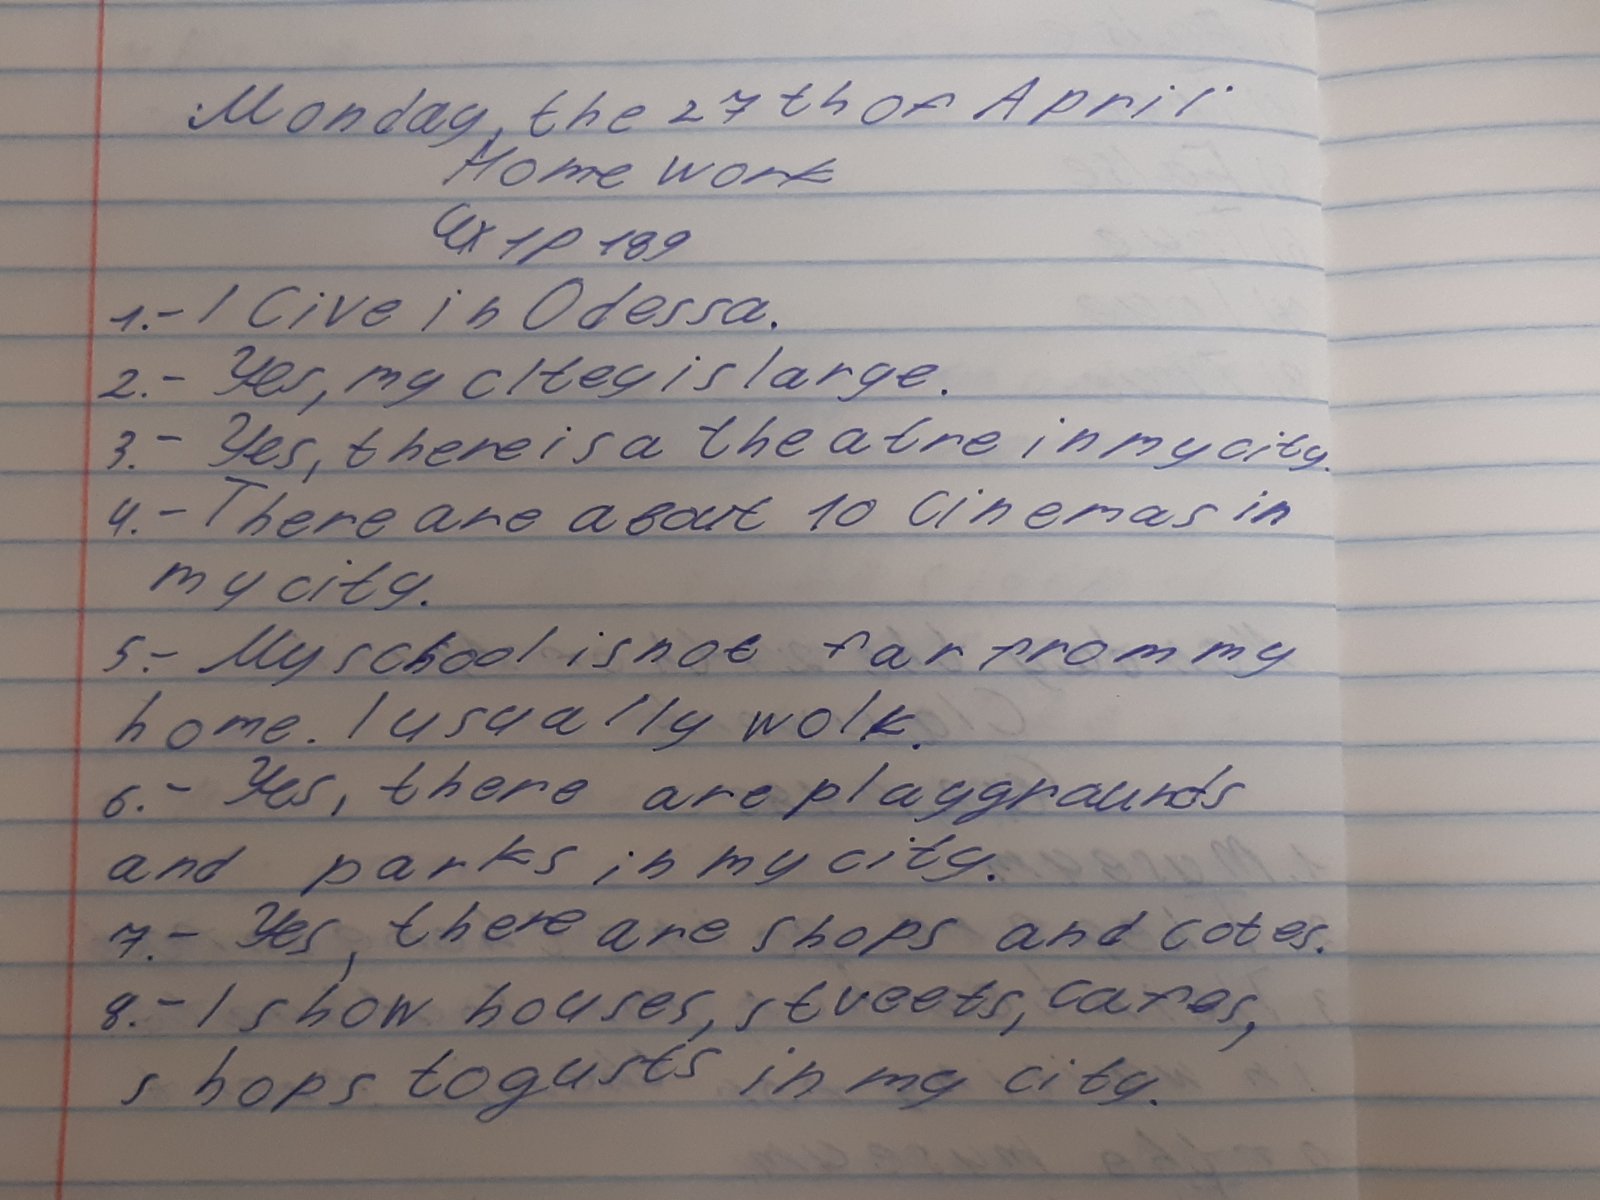 Monday, the 27th of April
Home work
Ex 1 p 189
1.- I live in Odessa.
2.- Yes, my citey is large.
3.- Yes, there is a theatre in my city.
4.- There are about 10 cinemas in
my city.
5.- My school is not far from my
home. I usually wolk.
6.- Yes, there are playgraunds
and parks in my city.
7.- Yes, there are shops and cotes.
8.- I show houses, streets, cafes,
shops to gusts in my city.